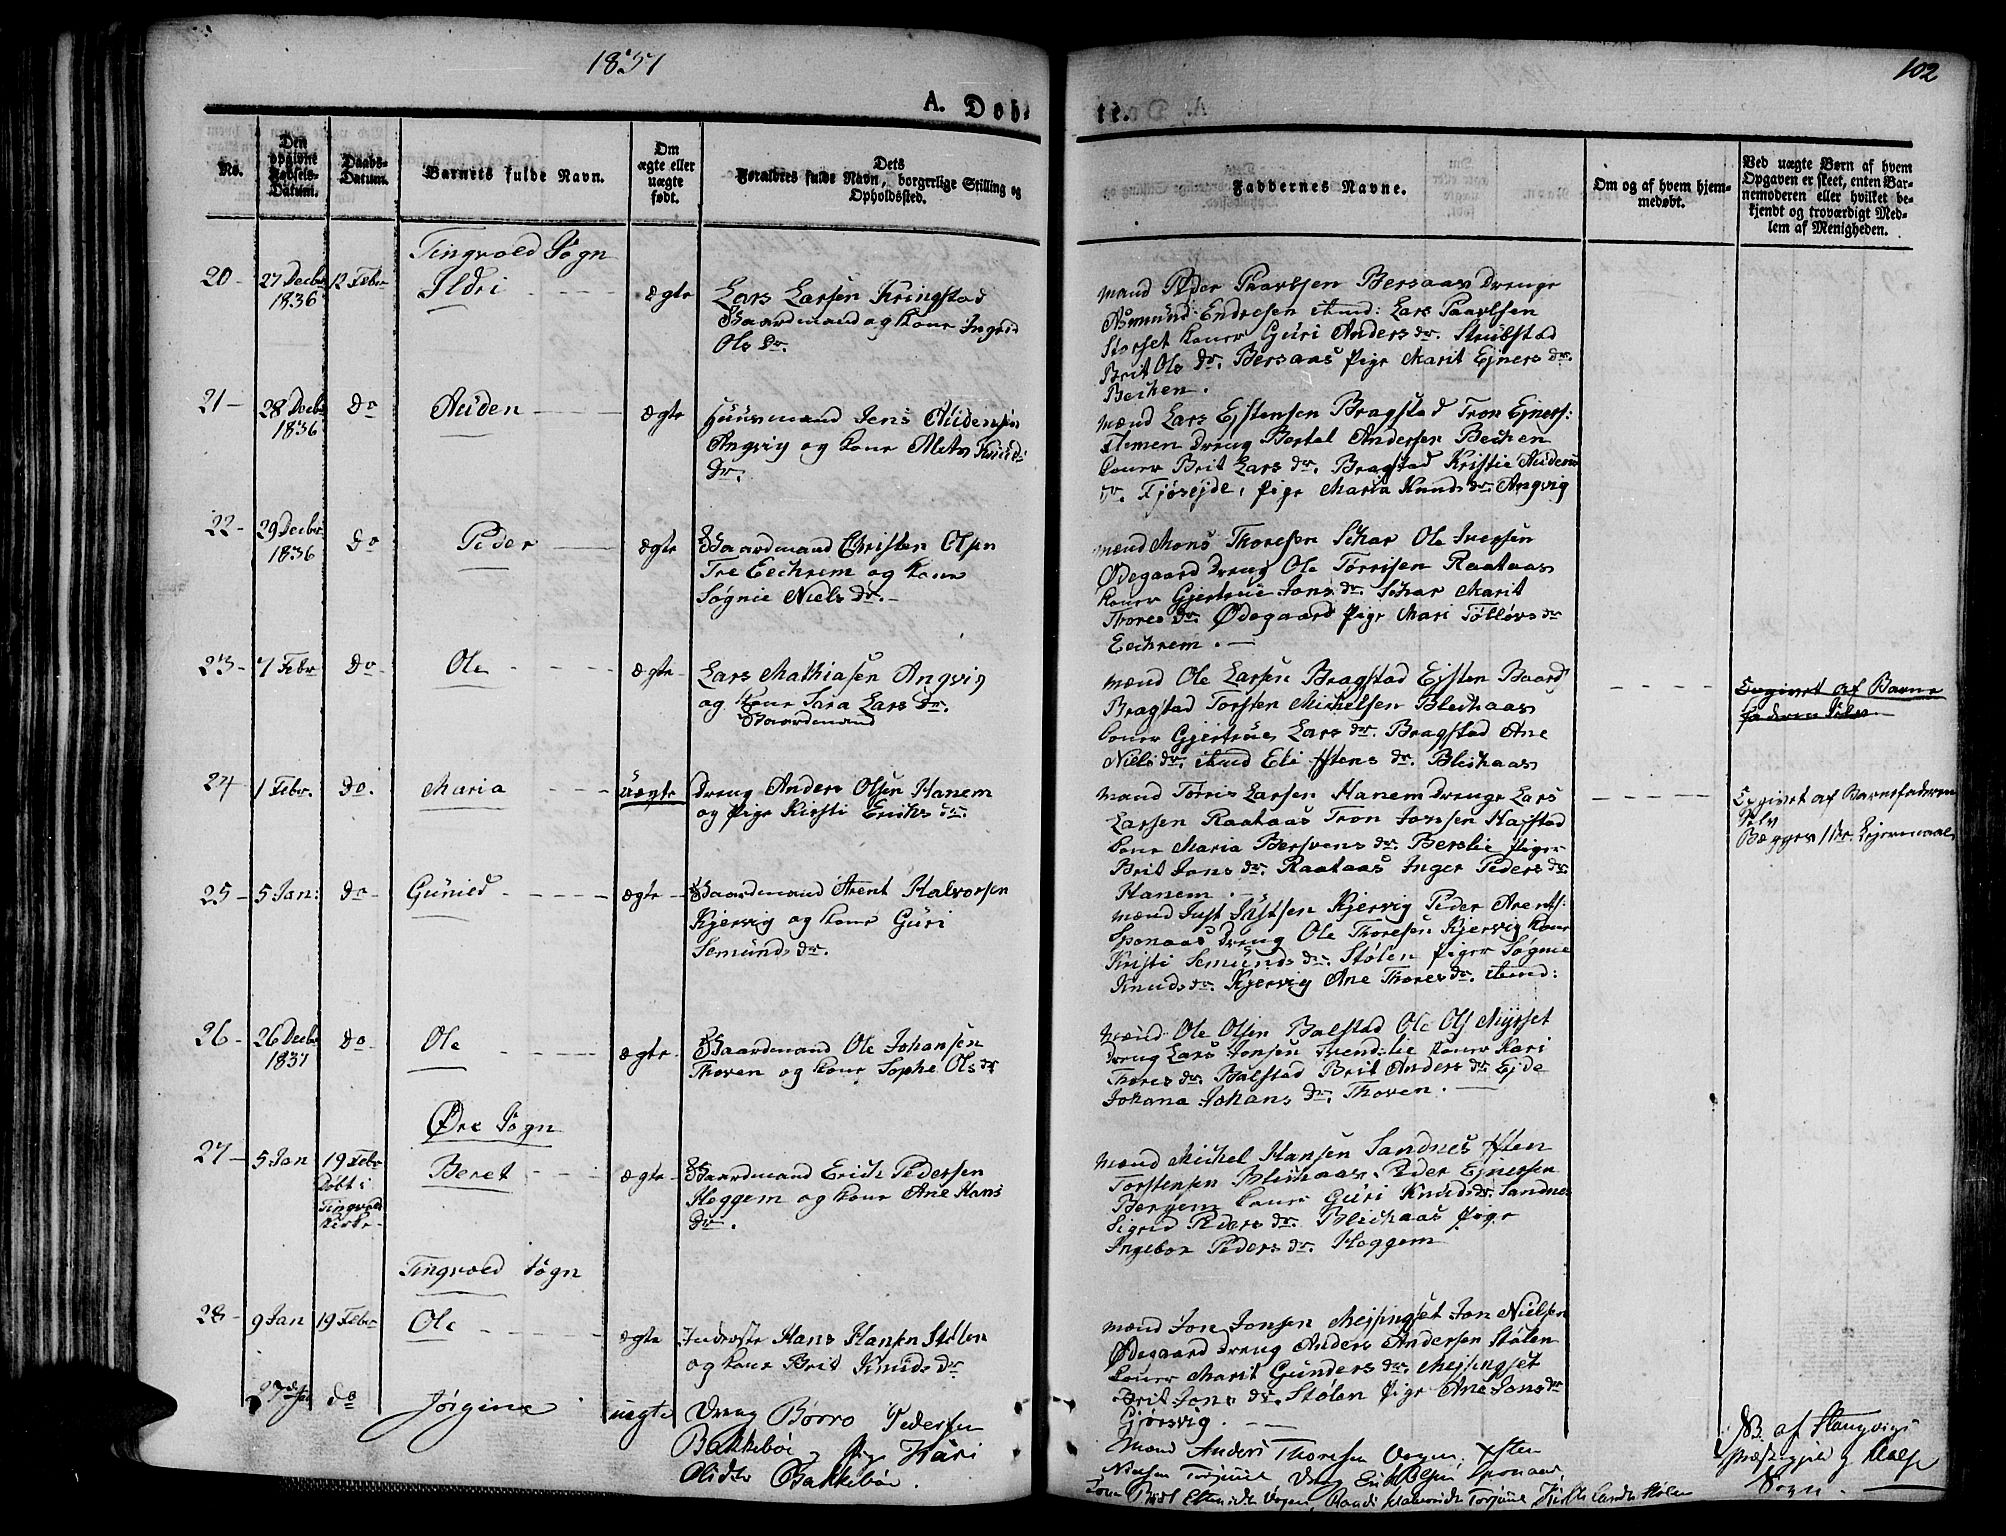 1837
102
A. Døbte.
No.
Den opgivne Fødsels-Datum.
Daabs-Datum.
Barnets fulde Navn.
Om ægte eller uægte født.
Dets Forældres fulde Navn, borgerlige Stilling og Opholdssted.
Faddernes Navne.
Om og af hvem hjemmedøbt.
Ved uægte Børn af hvem
Opgaven er skeet, enten Bar-
nemoderen eller hvilket be-
kjendt og troværdigt Med-
lem af Menigheden.
Tingvold Sogn
20 - 27 Decbr 1836 12 Febr Ildri ægte
Lars Larsen Kringstad
Gaardmand og kone Ingrid
Ols Dr.
mænd Peder Paavlsen Bersaas Drenge
Asmund Endresen ibid: Lars Paavlsen
Storset koner Guri Anders dr. Strübstad
Brit Ols Dr. Bersaas Pige Marit Ejners dr.
Bechen.
21 - 28 Decbr 1836 Do Auden ægte
Huusmand Jens Audensen
Angvig og kone Mets Knuds
Dr.
mænd Lars Ejstensen Bragstad Tron Ejners:
Flemen Dreng Bertel Andersen Bechen
koner Brit Lars dr. Bragstad Kristie Audens
dr. Fjøseide, Pige Maria Knuds dr. Angvig
22 - 29 Decbr 1836 Do Peder ægte
Gaardmand Christen Olsen
Tre Eechrem og kone
Søgnie Niels Dr.
mænd Mons Thoresen Schar Ole Iversen
Ødegaard Dreng Ole Torrisen Raataas
koner Gjertrue Jons dr. Schar Marit
Thores Dr. Ødegaard Pige Mari Tolløvs dr
Eechrem.
23 - 7 Febr Do Ole ægte
Lars Mathiasen Angvig
og kone Sara Lars Dr.
Gaardmand
mænd Ole Larsen Bragstad Ejsten Baard
Bragstad Torsten Michelsen Blechaas
koner Gjertrue Lars dr. Bragstad Ane
Niels dr. ibid Eli Estens dr. Blechaas
Opgivet af Barne
faderen selv
24 1 Febr. Do. Maria uægte
Dreng Anders Olsen Hanem
og Pige Kirsti Eriks dr.
mænd Torris Larsen Hanem Drenge Lars
Larsen Raataas Tron Jonsen Hafstad
kone Maria Bersvens dr. Berslie Piger
Brit Jons dr. Raataas Inger Peders dr.
Hanem.
Opgivet af Barnefaderen
selv
Begges 1ste Leiermaal
25 - 5 Jan: Do Gunied ægte
Gaardmand Arent Halvorsen
Kjervig og kone Guri
Semunds dr.
mænd Just Justsen Kjervig Peder Arents:
Sponaas Dreng Ole Thoresen Kjervig kone
Kristi Semunds dr. Stølen Piger Søgnie
Knuds dr. Kjervig Ane Thores dr. ibid:
26 - 26 Decbr 1837 Do Ole ægte
Gaardmand Ole Johansen
Thoven og kone Sophe Ols dr
mænd Ole Olsen Balstad Ole Ols Myrset
Dreng Lars Jonsen Trendslie koner Kari
Thores dr. Balstad Brit Anders dr. Ejde
Johana Johans dr. Thoven.
Øre Sogn
27 - 5 Jan 19 Febr Døbt i Tingvold Kirke Beret ægte
Gaardmand Erich Pedersen
Hoggem og kone Ane Hans
dr.
mænd Michel Hansen Sandnes Esten
Torstensen Blechaas, Peder Ejnersen
Bergem koner Guri Knuds dr. Sandnes
Sigrid Peders dr. Blechaas Pige
Ingebor Peders dr. Hoggem
Tingvold Sogn
28 - 9 Jan 19 Febr Ole ægte
Inderste Hans Hansen Stølen
og kone Brit Knuds Dr
mænd Jon Jonsen Mejsingset Jon Nielsen
Ødegaard Dreng Anders Andersen Stølen
koner Marit Gunders dr. Mejsingset
Brit Jons dr. Stølen Pige Ane Jons dr
Gjørsvig.
27 Jan do Jørgine uægte
Dreng Børre Pedersen
Bakkebøe og Pige Kari
Olsdtr Bakkebøe.
Mænd Anders Thoresen Vogen, Esten
Nielsen Torjulle Dreng Erik Olsen Sponaas,
NB. af Stangvigs
Præstegjeld og Halse
Sogn.